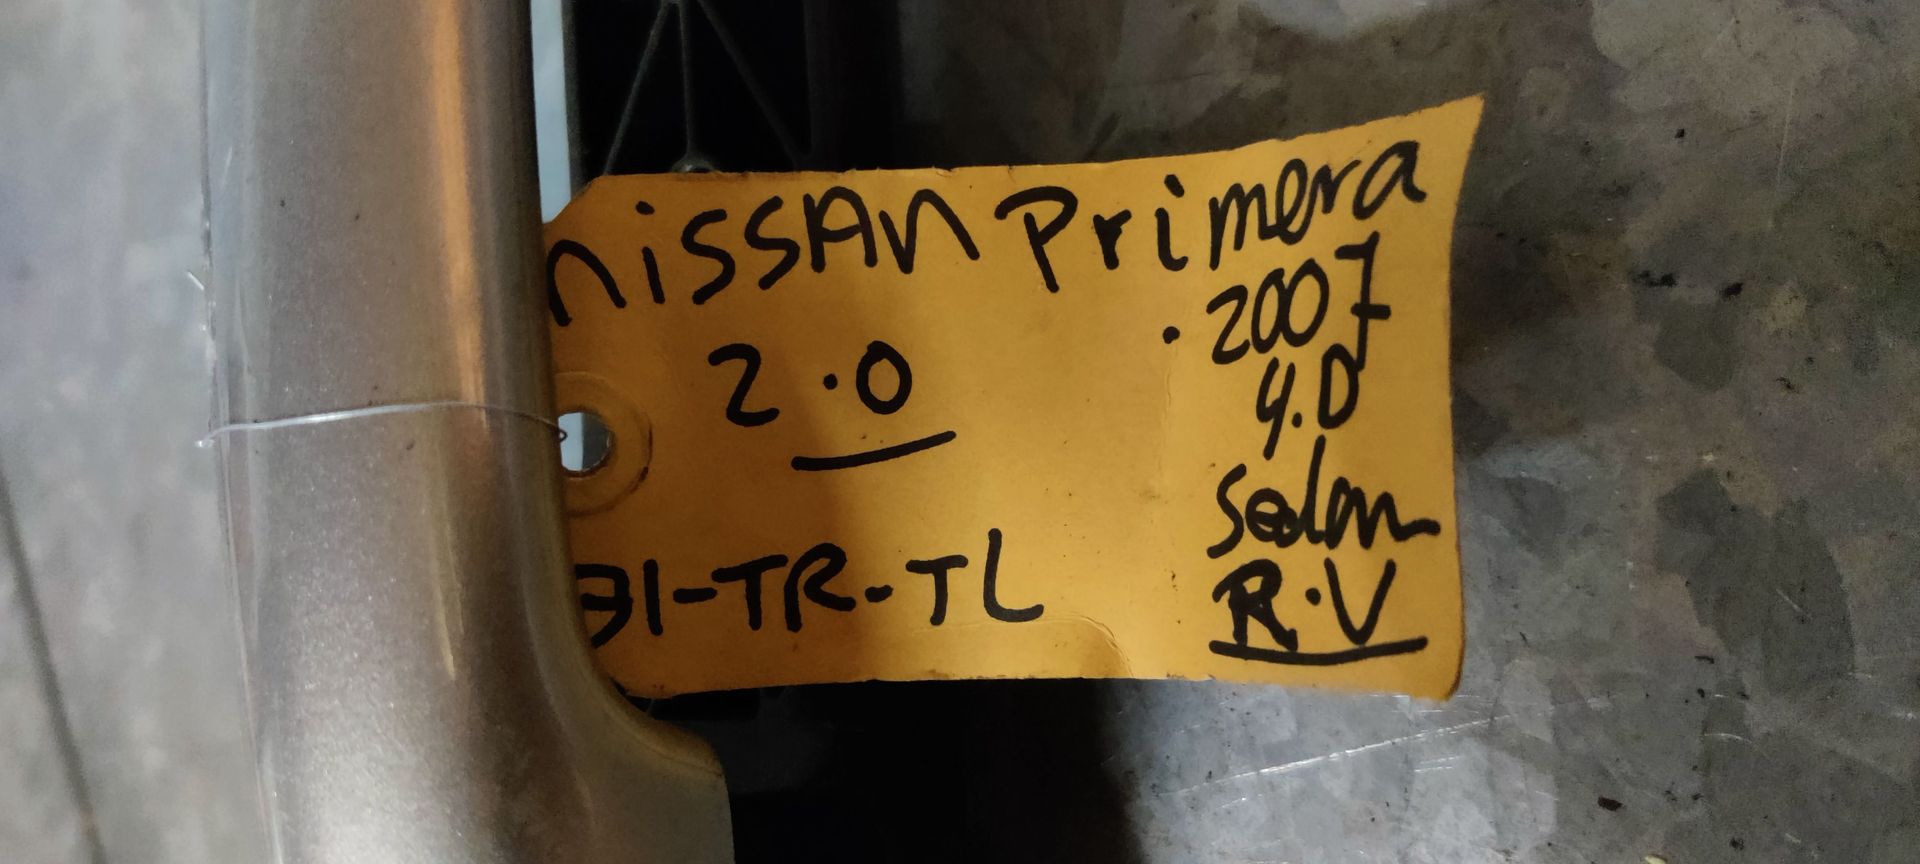 NISSAN Primera
2.0
.2007
4.D
Sedan
31-TR-TL
R.V